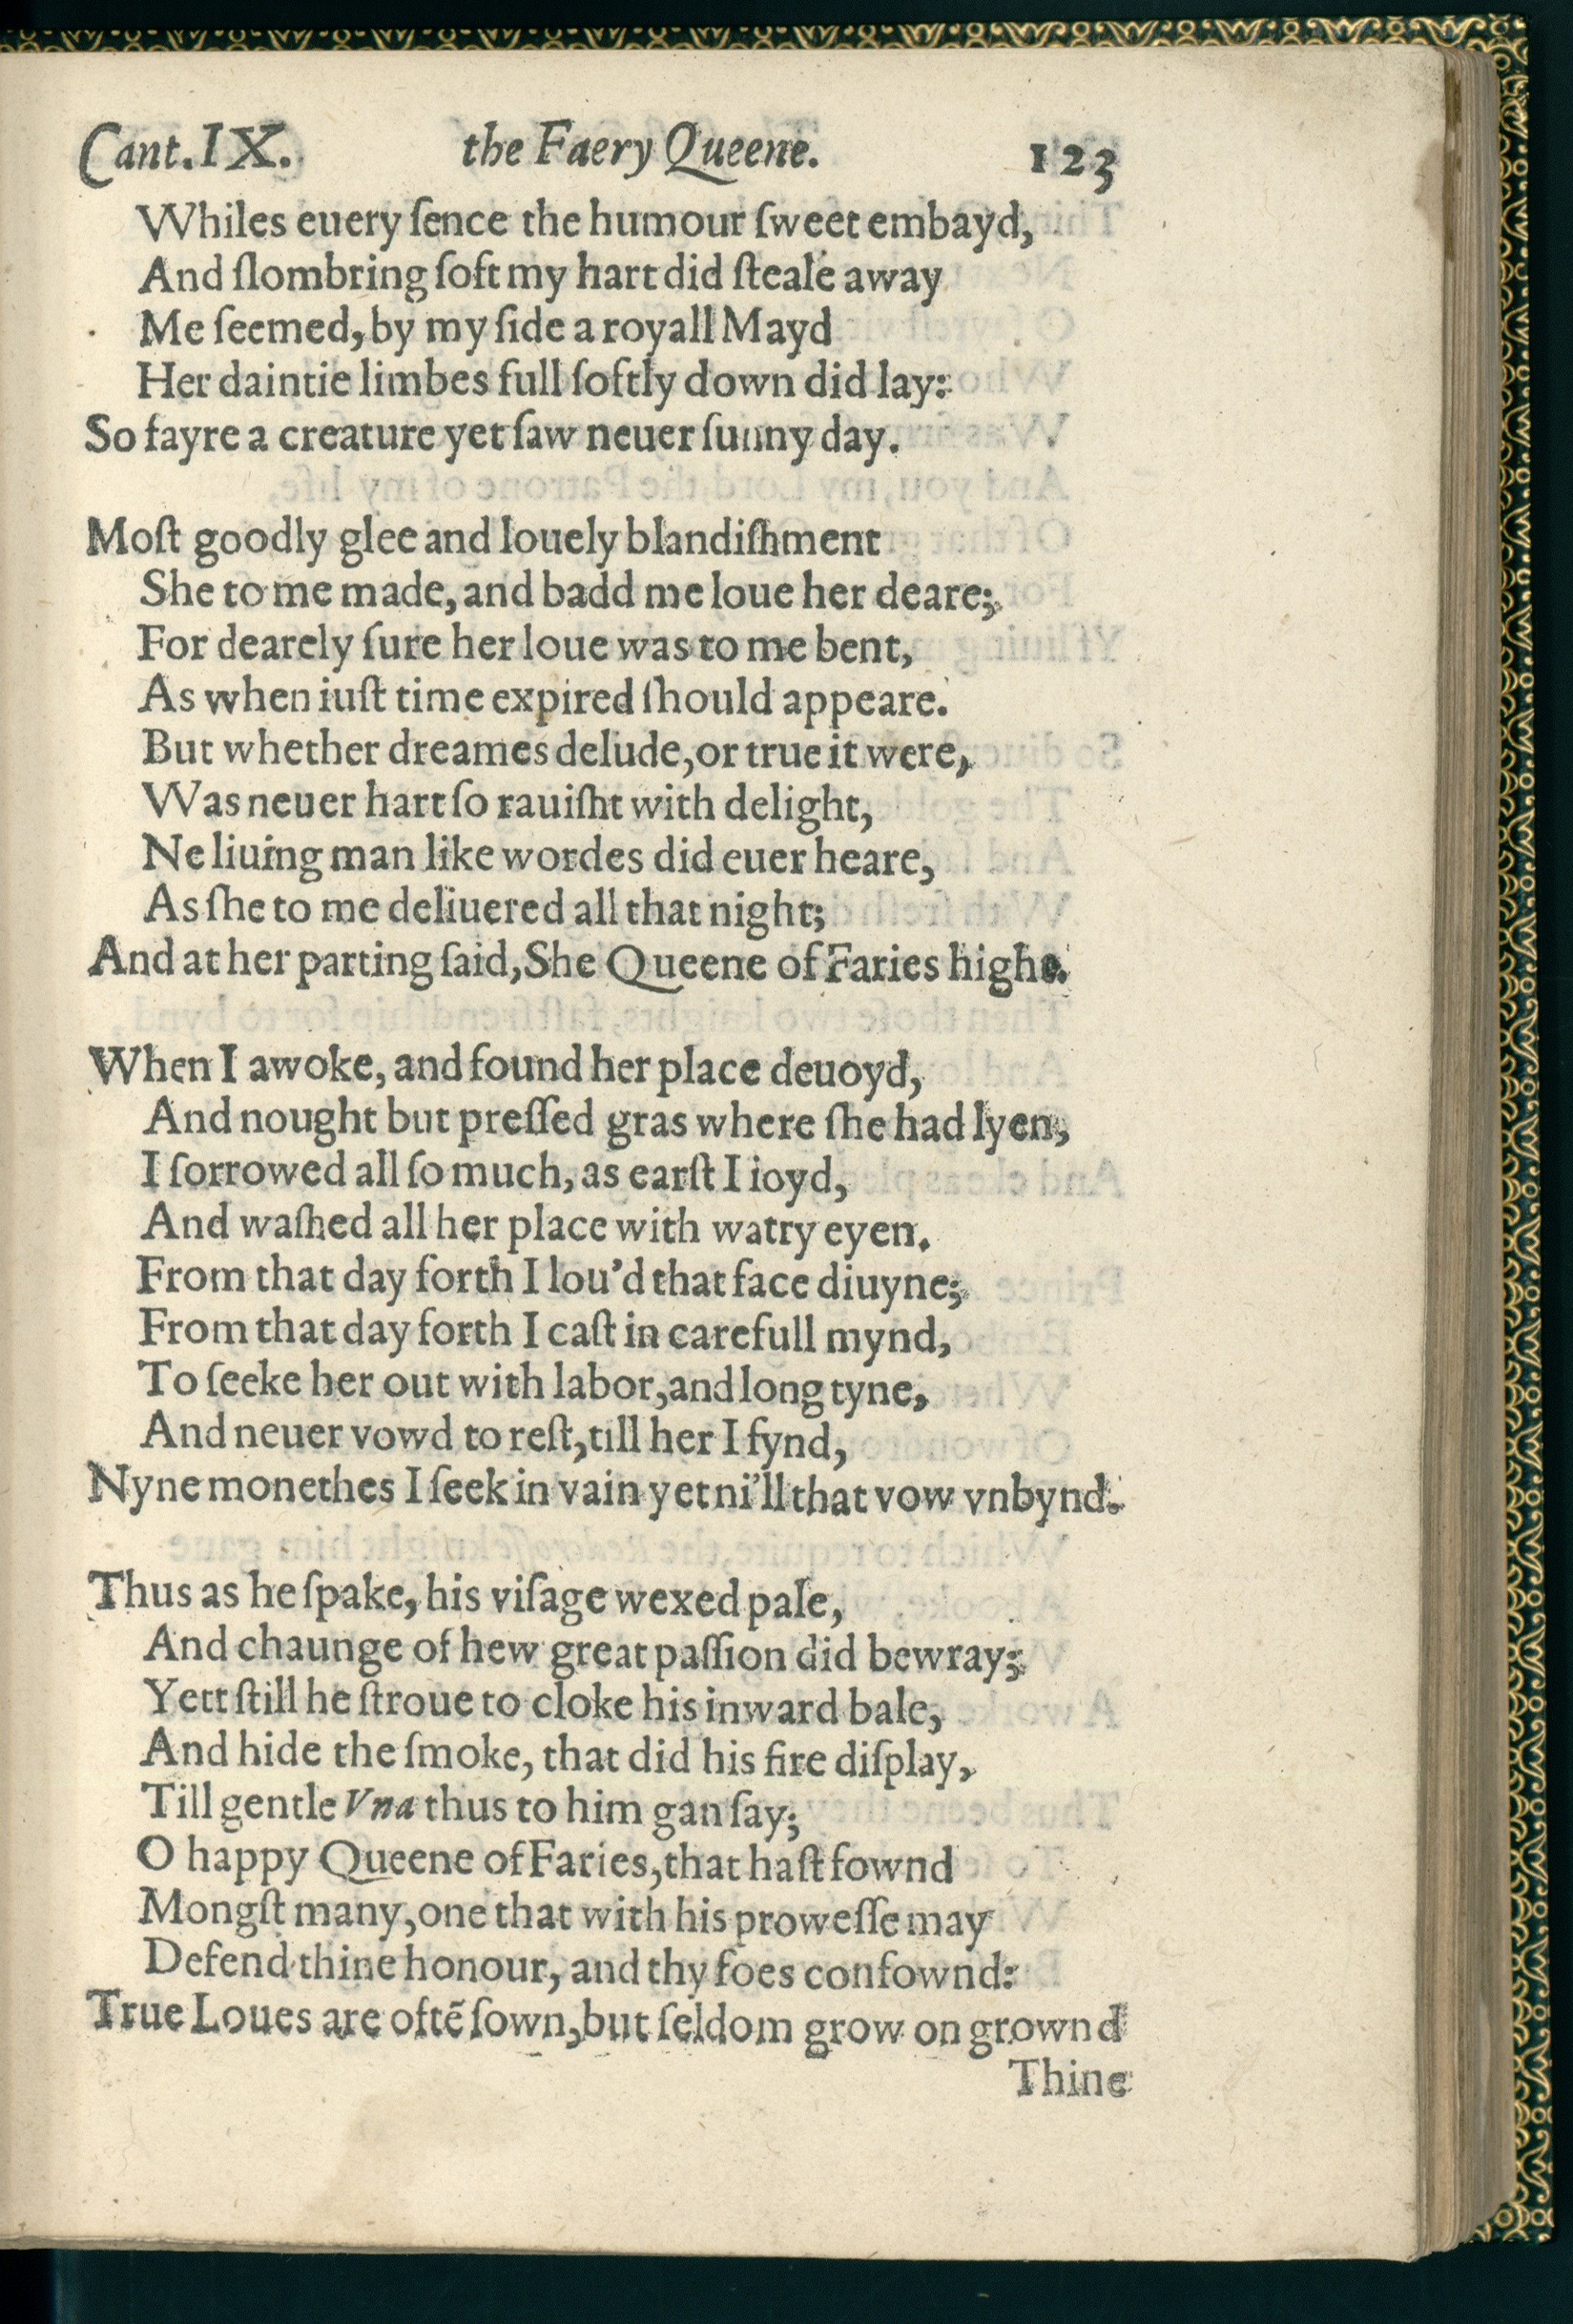 Cant. IX. the Faery Queene. 123
Whiles euery ſence the humour ſweet embayd,
And ſlombring ſoft my hart did ſteale away
Me ſeemed, by my ſide a royall Mayd
Her daintie limbes full ſoftly down did lay:
So fayre a creature yet ſaw neuer ſunny day.
Moſt goodly glee and louely blandiſhment
She to me made, and badd me loue her deare;
For dearely ſure her loue was to me bent,
As when iuſt time expired ſhould appeare.
But whether dreames delude, or true it were,
Was neuer hart ſo rauiſht with delight,
Ne liuing man like wordes did euer heare,
As ſhe to me deliuered all that night;
And at her parting ſaid, She Queene of Faries highe.
When I awoke, and found her place deuoyd,
And nought but preſſed gras where ſhe had lyen,
I ſorrowed all ſo much, as earſt I ioyd,
And waſhed all her place with watry eyen.
From that day forth I lou'd that face diuyne;
From that day forth I caſt in carefull mynd,
To ſeeke her out with labor, and long tyne,
And neuer vowd to reſt, till her I fynd,
Nyne monethes I ſeek in vain yet ni'll that vow vnbynd.
Thus as he ſpake, his viſage wexed pale,
And chaunge of hew great paſſion did bewray;
Yett ſtill he ſtroue to cloke his inward bale,
And hide the ſmoke, that did his fire diſplay,
Till gentle Vna thus to him gan ſay;
O happy Queene of Faries, that haſt fownd
Mongſt many, one that with his proweſſe may
Defend thine honour, and thy foes confownd:
True Loues are oftẽ ſown, but ſeldom grow on grownd
Thine